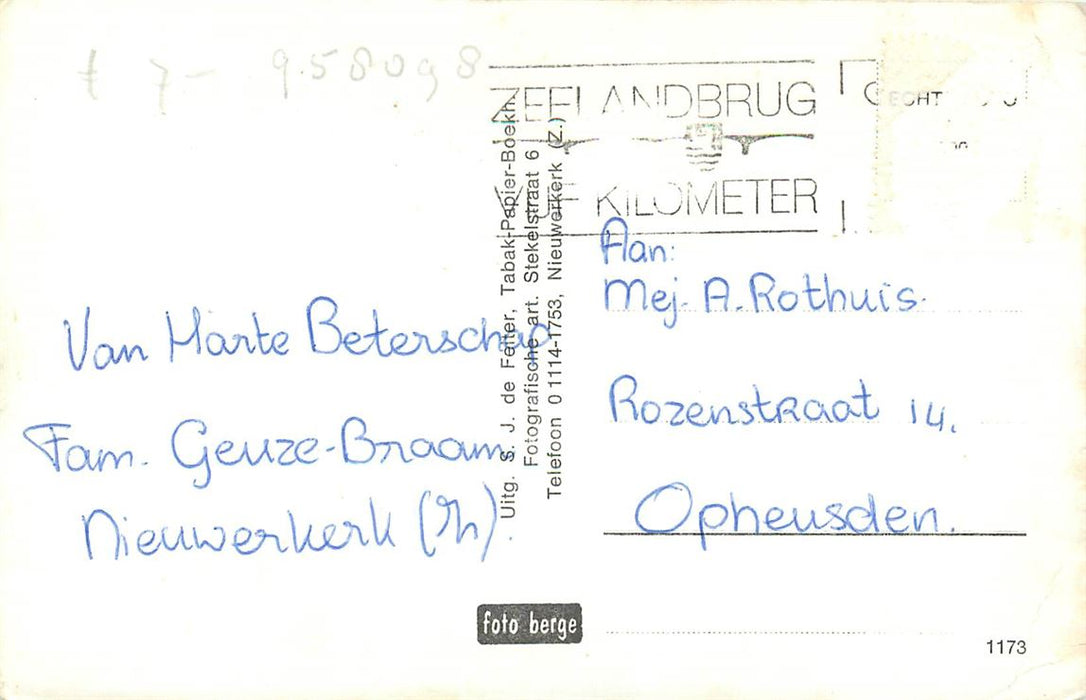 7- 958098
ZEELANDBRUG
KILOMETER
ECHT
Uitg. S. J. de Feiter, Tabak-Papier-Boekh.
Fotografische art. Stekelstraat 6
Telefoon 0 1114-1753, Nieuwerkerk (Z.)
Van Harte Beterschap
Fam. Geuze-Braam
Nieuwerkerk
Aan:
Mej. A. Rothuis.
Rozenstraat 14.
Opheusden.
foto berge
1173